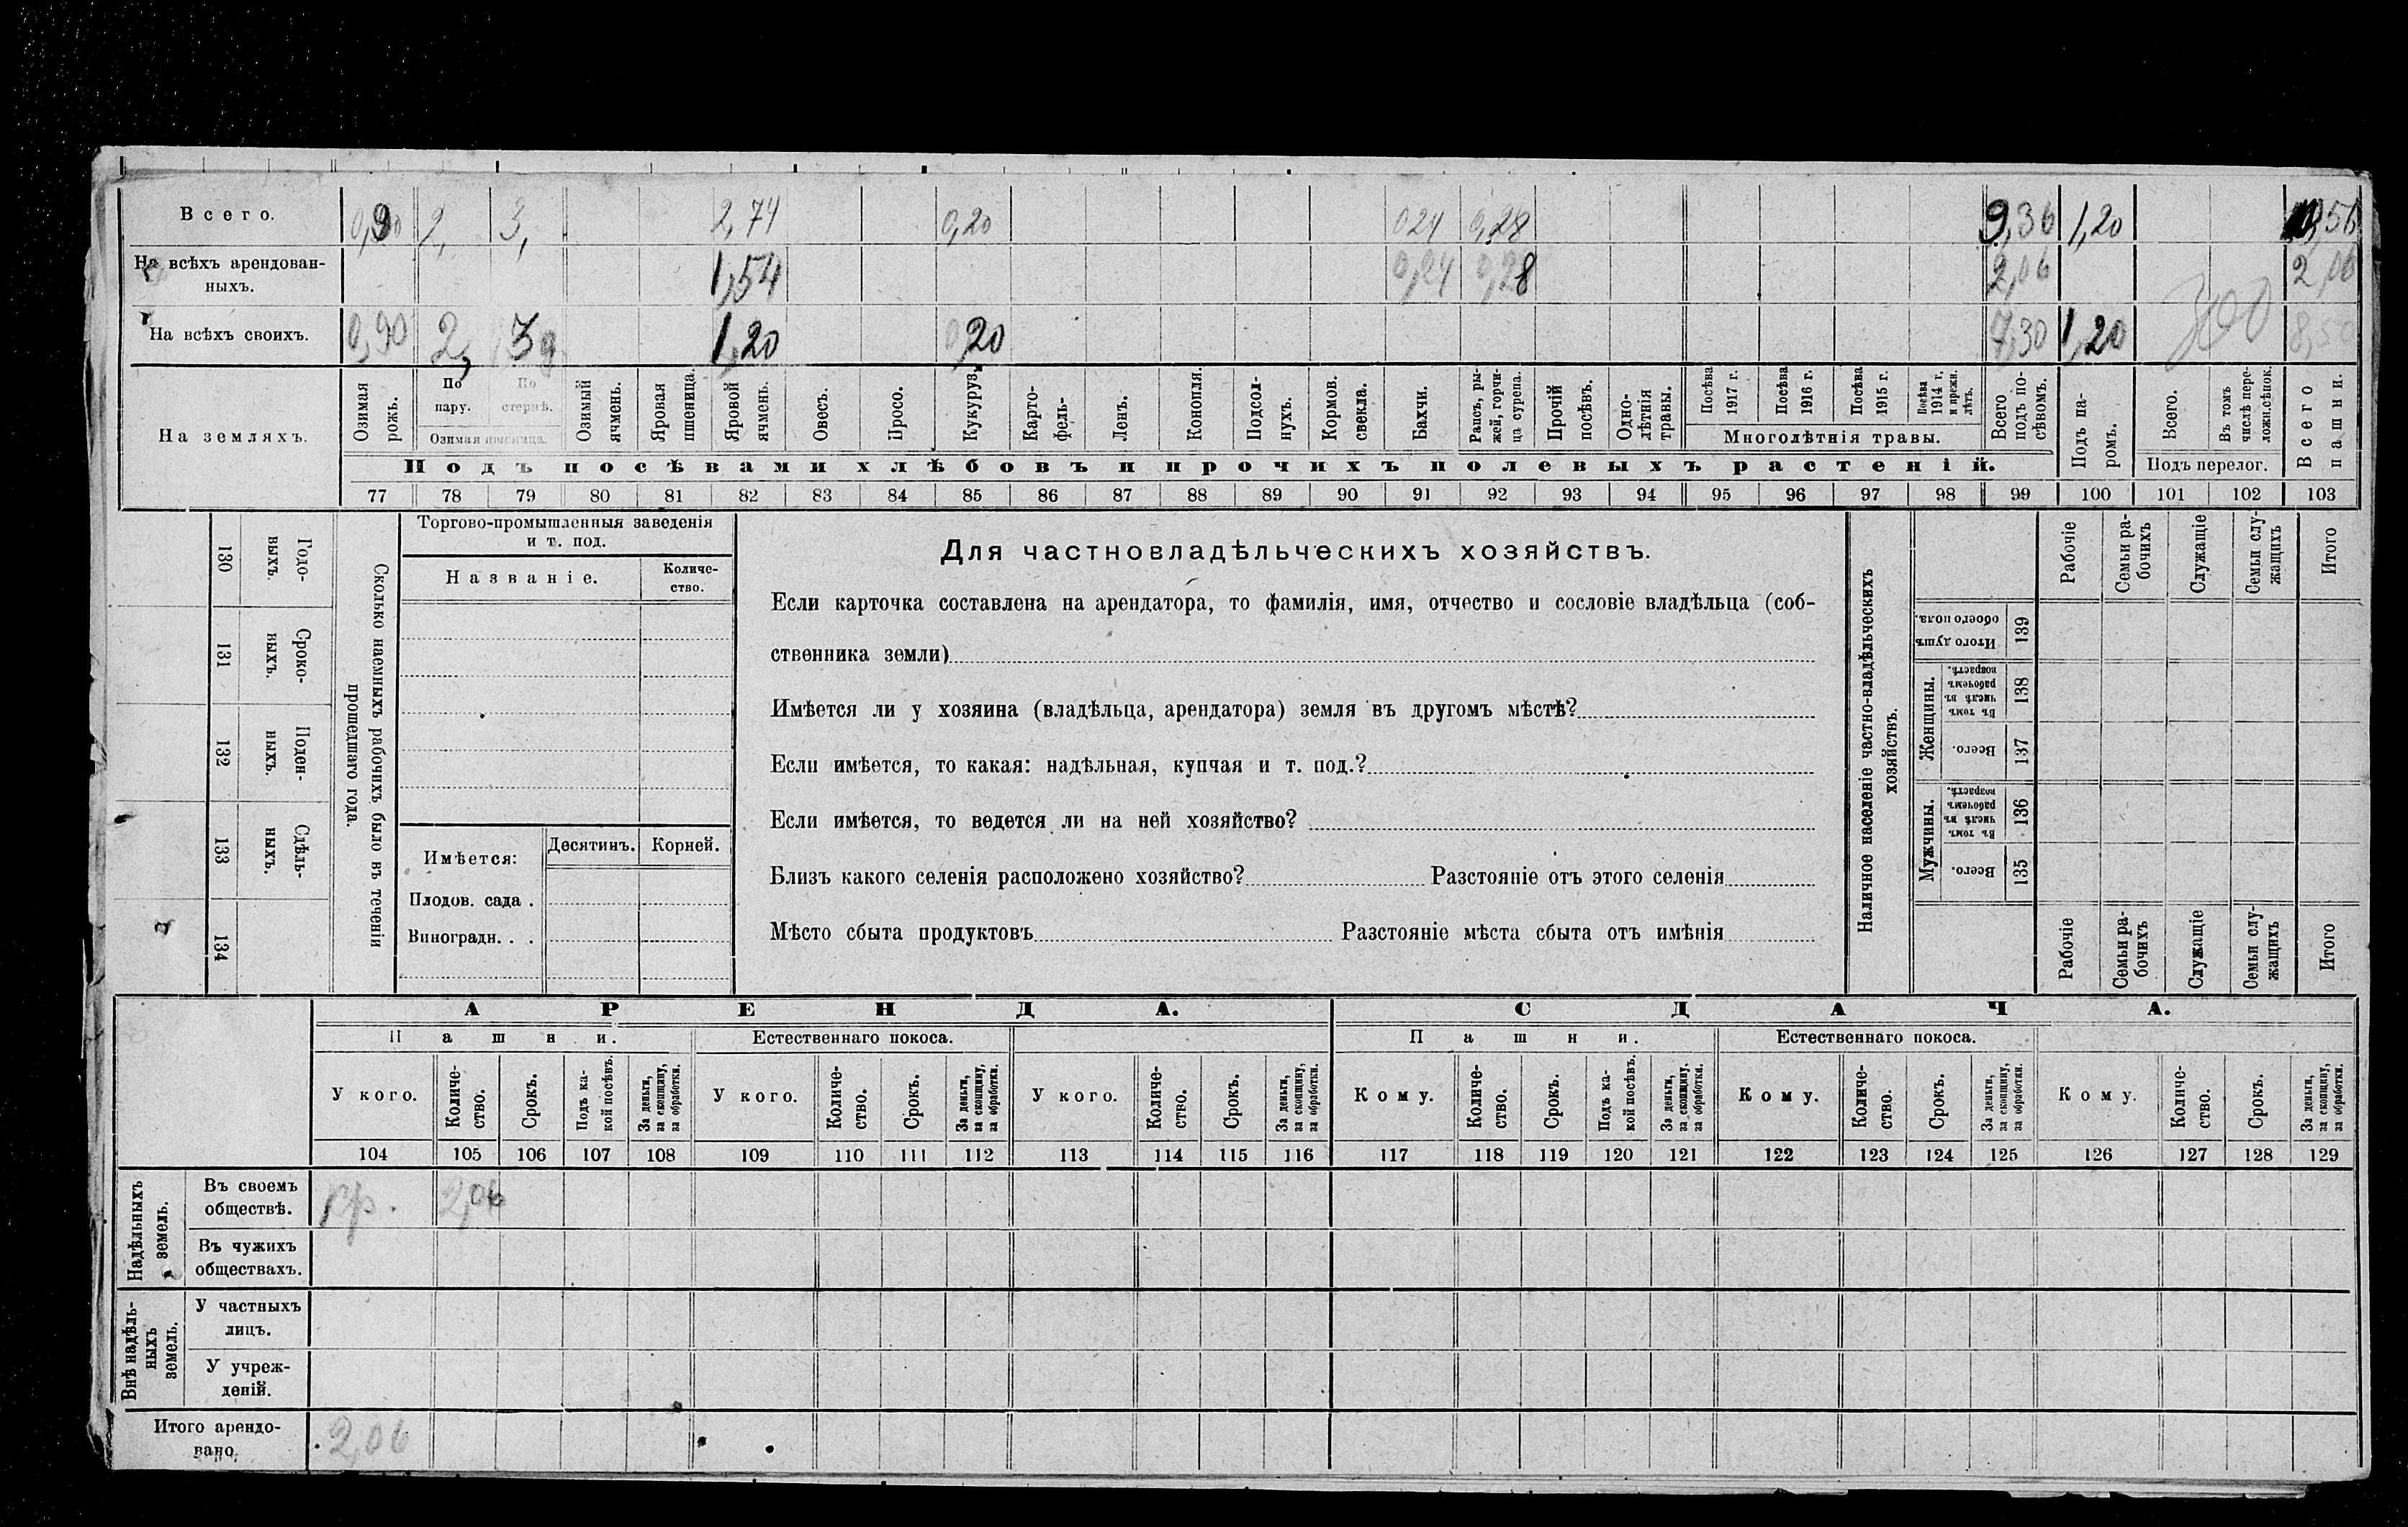 Всего. 0,90 2, 3, 2,74 0,20 0,24 0,28 9,36 1,20
На всѣхъ арендован-
ныхъ. 1,54 0,24 0,28 2,06 2,06
На всѣхъ своихъ. 0,90 2, 3, 1,20 0,20 7,30 1,20 8,50
На земляхъ.
Озимая рожь.
По пару.
По стернѣ.
Озимая пшеница.
Озимый ячмень.
Яровая пшеница.
Яровой ячмень.
Овесъ.
Просо.
Кукуруз.
Карто-
фель-
Ленъ.
Конопля.
Подсол-
нухъ.
Кормов.
свекла.
Бахчи.
Рапсъ, ры-
жей, горчи-
ца сурепа.
Прочій
посѣвъ.
Одно-
лѣтнія
травы.
Посѣва
1917 г.
Посѣва
1916 г.
Посѣва
1915 г.
Посѣва
1914 г.
и прежн.
лѣтъ.
Многолѣтнія травы.
Всего
подъ по-
сѣвомъ.
Подъ па-
ромъ.
Всего.
Въ томъ
числѣ пере-
ложн.сѣнок.
Подъ перелог.
Всего
пашни.
Подъ посѣвами хлѣбовъ и прочихъ полевыхъ растеній.
77 78 79 80 81 82 83 84 85 86 87 88 89 90 91 92 93 94 95 96 97 98 99 100 101 102 103
130 Годо-
выхъ.
131 Сроко-
выхъ.
132 Поден-
ныхъ.
133 Сдѣль-
ныхъ.
134
Сколько наемныхъ рабочихъ было въ теченіи
прошедшаго года.
Торгово-промышленныя заведенія
и т. под.
Названіе.
Количе-
ство.
Имѣется:
Десятинъ. Корней.
Плодов. сада .
Виноградн. . .
Для частновладѣльческихъ хозяйствъ.
Если карточка составлена на арендатора, то фамилія, имя, отчество и сословіе владѣльца (соб-
ственника земли)
Имѣется ли у хозяина (владѣльца, арендатора) земля въ другомъ мѣстѣ?
Если имѣется, то какая: надѣльная, купчая и т. под.?
Если имѣется, то ведется ли на ней хозяйство?
Близъ какого селенія расположено хозяйство? Разстояніе отъ этого селенія
Мѣсто сбыта продуктовъ Разстояніе мѣста сбыта отъ имѣнія
Наличное населеніе частно-владѣльческихъ
хозяйствъ.
Рабочіе
Семьи ра-
бочихъ
Служащіе
Семьи слу-
жащихъ
Итого
Итого душъ
обоего пола.
139
Женщины.
Въ томъ
числѣ въ
рабочемъ
возрастѣ.
138
Всего.
137
Мужчины.
Въ томъ
числѣ въ
рабочемъ
возрастѣ.
136
Всего.
135
Рабочіе
Семьи ра-
бочихъ
Служащіе
Семьи слу-
жащихъ
Итого
АРЕНДА. СДАЧА.
Пашни. Естественнаго покоса. Пашни. Естественнаго покоса.
У кого.
Количе-
ство.
Срокъ.
Подъ ка-
кой посѣвъ.
За деньги,
за скопщину,
за обработки.
У кого.
Количе-
ство.
Срокъ.
За деньги,
за скопщину,
за обработки.
У кого.
Количе-
ство.
Срокъ.
За деньги,
за скопщину,
за обработки.
Кому.
Количе-
ство.
Срокъ.
Подъ ка-
кой посѣвъ.
За деньги,
за скопщину,
за обработки.
Кому.
Количе-
ство.
Срокъ.
За деньги,
за скопщину,
за обработки.
Кому.
Количе-
ство.
Срокъ.
За деньги,
за скопщину,
за обработки.
104 105 106 107 108 109 110 111 112 113 114 115 116 117 118 119 120 121 122 123 124 125 126 127 128 129
Надѣльныхъ
земель.
Въ своемъ
обществѣ. кр. 2,06
Въ чужихъ
обществахъ.
Внѣ надѣль-
ныхъ
земель.
У частныхъ
лицъ.
У учреж-
деній.
Итого арендо-
вано. 2,06